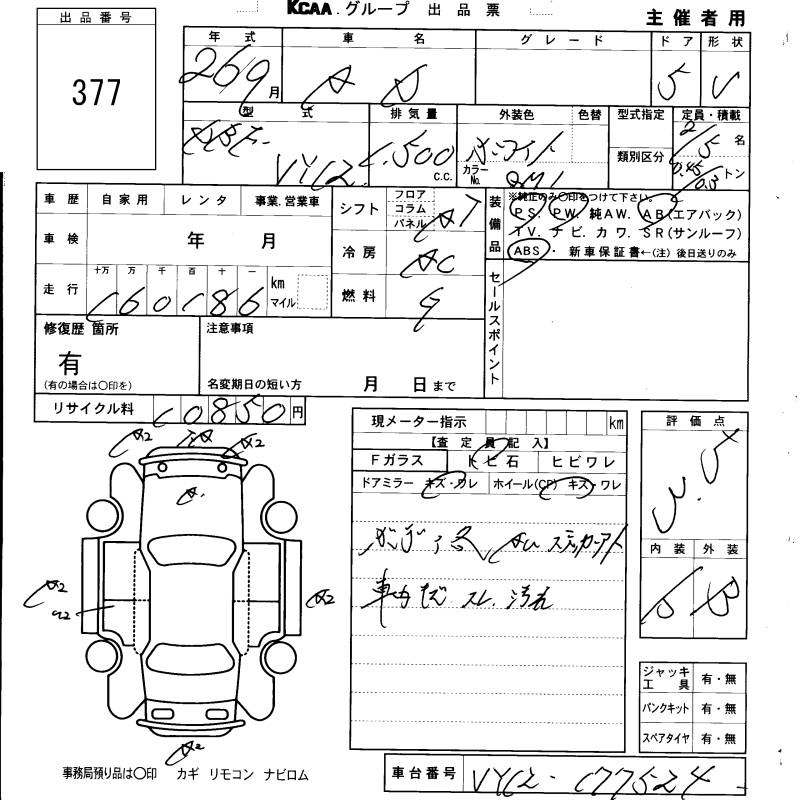 KCAA グループ 出品票
主催者用
出品番号
377
年式 車名 グレード ドア 形状
26 9月 AD 5 V
型式 排気量 外装色 色替 型式指定 定員・積載
DBF- VY12 1,500 c.c. ホワイト カラーNo. QM1 類別区分 2/5名
0.45/0.3トン
車歴 自家用 レンタ 事業.営業車
車検 年 月
走行 十万 万 千 百 十 一
160186 km マイル
シフト フロア コラム パネル AT
冷房 AC
燃料 G
装備品 ※純正のみ〇印をつけて下さい。
PS. PW. 純AW. AB(エアバック)
TV. ナビ. カワ. SR(サンルーフ)
ABS・ 新車保証書←(注)後日送りのみ
セールスポイント
修復歴 箇所
有
(有の場合は〇印を)
注意事項
名変期日の短い方 月 日まで
リサイクル料 10850円
現メーター指示 km
【査定員記入】
Fガラス トビ石 ヒビワレ
ドアミラー キズ・ワレ ホイール(CP) キズ・ワレ
評価点
3.5
内装 外装
B B
A2 A2
A2
A2 A2
A2
ジャッキ工具 有・無
パンクキット 有・無
スペアタイヤ 有・無
事務局預り品は〇印 カギ リモコン ナビロム
車台番号 VY12-177524